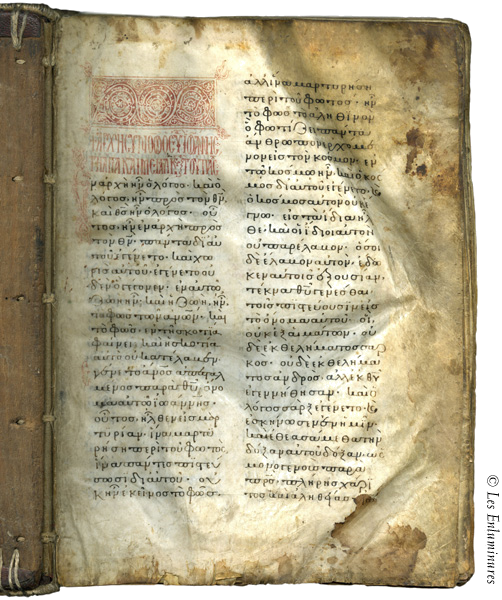 ν ἀρχῆ ἦν ὁ λόγος· καὶ ὁ
λόγος ἦν πρὸς τὸν θν·
καὶ θς ἦν ὁ λόγος· οὗ
τος ἦν ἐν ἀρχῆ πρὸς
τὸν θν· πάντα δι αὐ
τοῦ ἐγένετο· καὶ χω
ρὶς αὐτοῦ ἐγένετο οὐ
δὲν ὃ γέγονεν· ἐν αὐτῶ
ζωὴ ἦν· καὶ ἡ ζωὴ ἦν
τὸ φῶς τῶν ανων· καὶ
τὸ φῶς ἐν τῆ σκοτία
φαίνει· καὶ ἡ σκοτία
αὐτὸ οὐ κατέλαβεν·
ἀπεσταλ
μένος παρὰ θυ· ὄνο
μα αὐτῶ ἰωάννης·
οὗτος ἦλθεν εἰς μαρ
τυρίαν· ἵνα μαρτυ
ρήση περὶ τοῦ φωτός·
ἵνα πάντες πιστεύ
σωσι δι αὐτοῦ· οὐκ
ἦν ἐκεῖνος τὸ φῶς·
ἀλλ ἵνα μαρτυρήση
περὶ τοῦ φωτός· ἦν
τὸ φῶς τὸ ἀληθινὸν
ὃ φωτίζει πάντα
ἄνθρωπον ἐρχό
μενον εἰς τὸν κόσμον· ἐν
τῶ κόσμω ἦν· καὶ ὁ κόσ
μος δι αὐτοῦ ἐγένετο· καὶ
ὁ κόσμος αὐτὸν οὐκ ἔ
γνω· εἰς τὰ ἴδια ἦλ
θε· καὶ οἱ ἴδιοι αὐτὸν
οὐ παρέλαβον· ὅσοι
δὲ ἔλαβον αὐτὸν· ἔδω
κεν αὐτοῖς ἐξουσίαν·
τέκνα θυ γενέσθαι
τοῖς πιστεύουσιν εἰς
τὸ ὄνομα αὐτοῦ· οἳ
οὐκ ἐξ αἱμάτων· οὐ
δὲ ἐκ θελήματος σαρ
κός· οὐδὲ ἐκ θελήμα
τος ἀνδρός· ἀλλ ἐκ θυ
ἐγεννήθησαν· καὶ ὁ
λόγος σὰρξ ἐγένετο· καὶ
ἐσκήνωσεν ἐν ἡμῖν·
καὶ ἐθεασάμεθα τὴν
δόξαν αὐτοῦ δόξαν ὡς
μονογενοῦς παρὰ
πρς· πλήρης χάρι
τος καὶ ἀληθείας·
© Les Enluminures